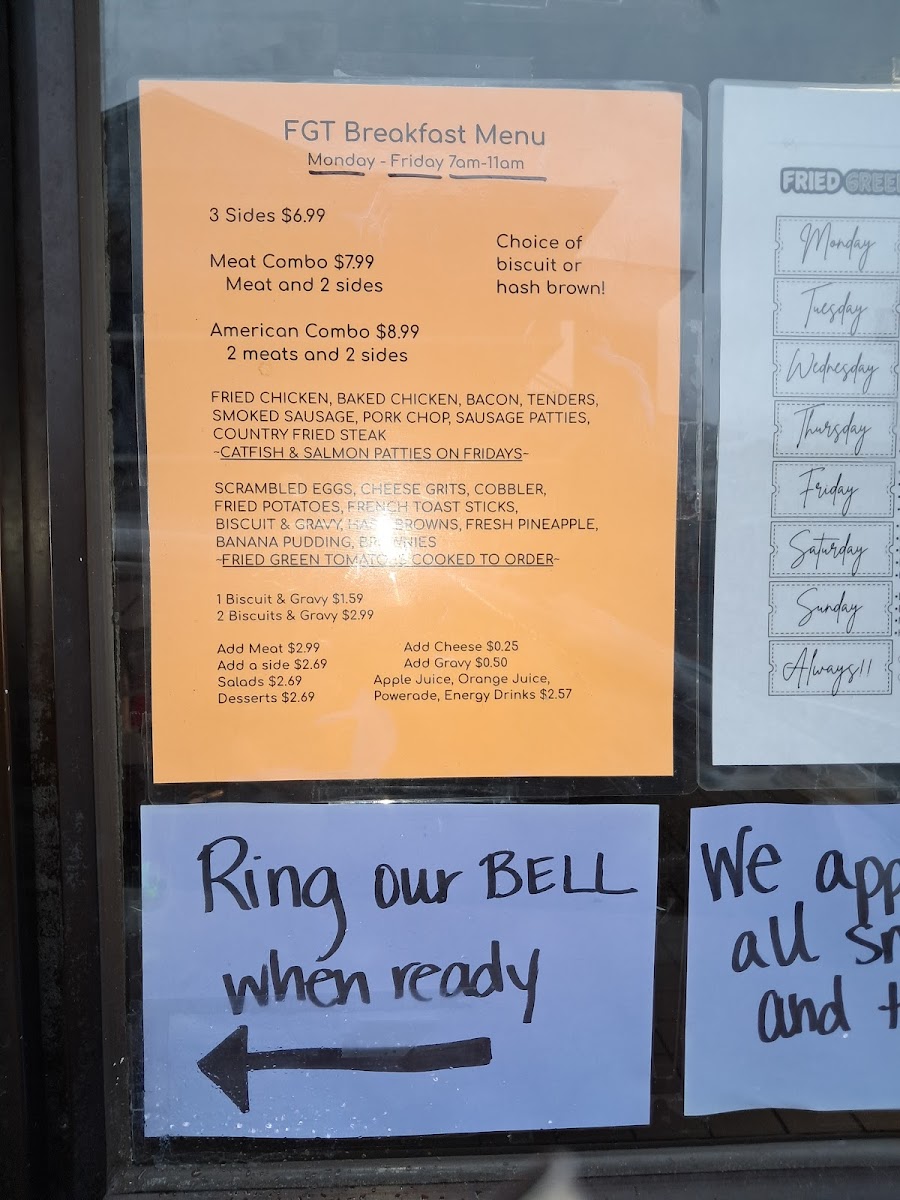 FGT Breakfast Menu
Monday - Friday 7am-11am
3 Sides $6.99
Meat Combo $7.99
Meat and 2 sides
Choice of
biscuit or
hash brown!
American Combo $8.99
2 meats and 2 sides
FRIED CHICKEN, BAKED CHICKEN, BACON, TENDERS,
SMOKED SAUSAGE, PORK CHOP, SAUSAGE PATTIES,
COUNTRY FRIED STEAK
~CATFISH & SALMON PATTIES ON FRIDAYS~
SCRAMBLED EGGS, CHEESE GRITS, COBBLER,
FRIED POTATOES, FRENCH TOAST STICKS,
BISCUIT & GRAVY, HASH BROWNS, FRESH PINEAPPLE,
BANANA PUDDING, BROWNIES
~FRIED GREEN TOMATOES COOKED TO ORDER~
1 Biscuit & Gravy $1.59
2 Biscuits & Gravy $2.99
Add Meat $2.99
Add a side $2.69
Salads $2.69
Desserts $2.69
Add Cheese $0.25
Add Gravy $0.50
Apple Juice, Orange Juice,
Powerade, Energy Drinks $2.57
FRIED
Monday
Tuesday
Wednesday
Thursday
Friday
Saturday
Sunday
Always!!
Ring our BELL
when ready
We
all
and